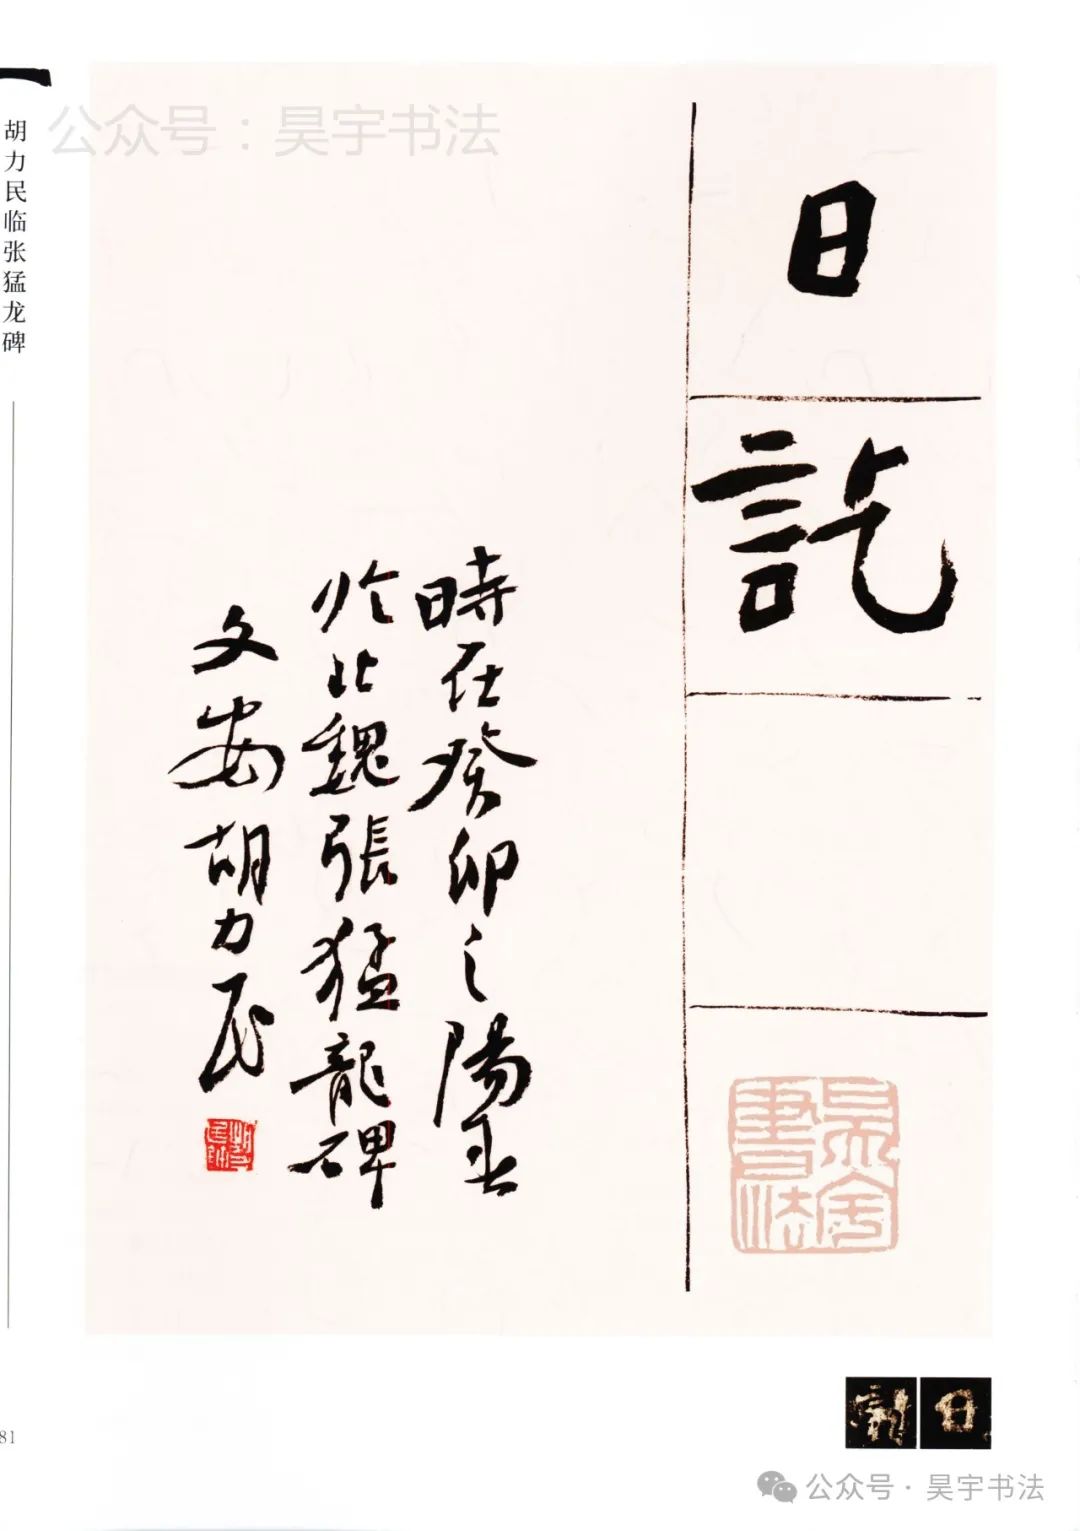 公众号：昊宇书法
胡力民临张猛龙碑
日訖
時在癸卯之陽春
於北魏張猛龍碑
文安胡力民
昊宇書法
訖日
81
公众号·昊宇书法